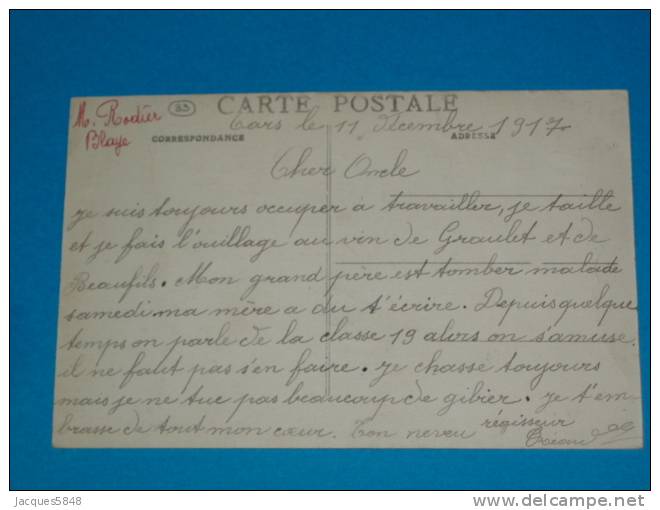 M. Rodier
Blaye
83
CARTE POSTALE
CORRESPONDANCE
ADRESSE
Cars le 11 décembre 1917
Cher Oncle
je suis toujours occuper à travailler, je taille
et je fais l'ouillage au vin de Graulet et de
Beaufils. Mon grand père est tomber malade
samedi. ma mère a du t'écrire. Depuis quelque
temps on parle de la classe 19 alors on s'amuse.
il ne faut pas s'en faire. je chasse toujours
mais je ne tue pas beaucoup de gibier. je t'em-
brasse de tout mon cœur. Ton neveu régisseur
Jacques5848
delcampe.net